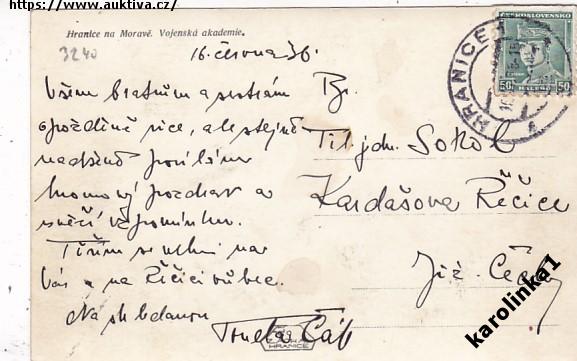 https://www.auktiva.cz/
Hranice na Moravě. Vojenská akademie.
3240
16. června 36.
Všem bratrům a sestrám
opožděně sice, ale stejně
nadšeně posílám
pozdrav a
svěží vzpomínku.
Těším se velmi na
Vás a na Řečici vůbec.
Na shledanou
Čáp
Br.
Tit. jedn. Sokol
Kardašova Řečice
Již. Čechy
ČESKOSLOVENSKO
50 HALÉŘŮ 50
HRANICE 1
HRANICE
karolinka1